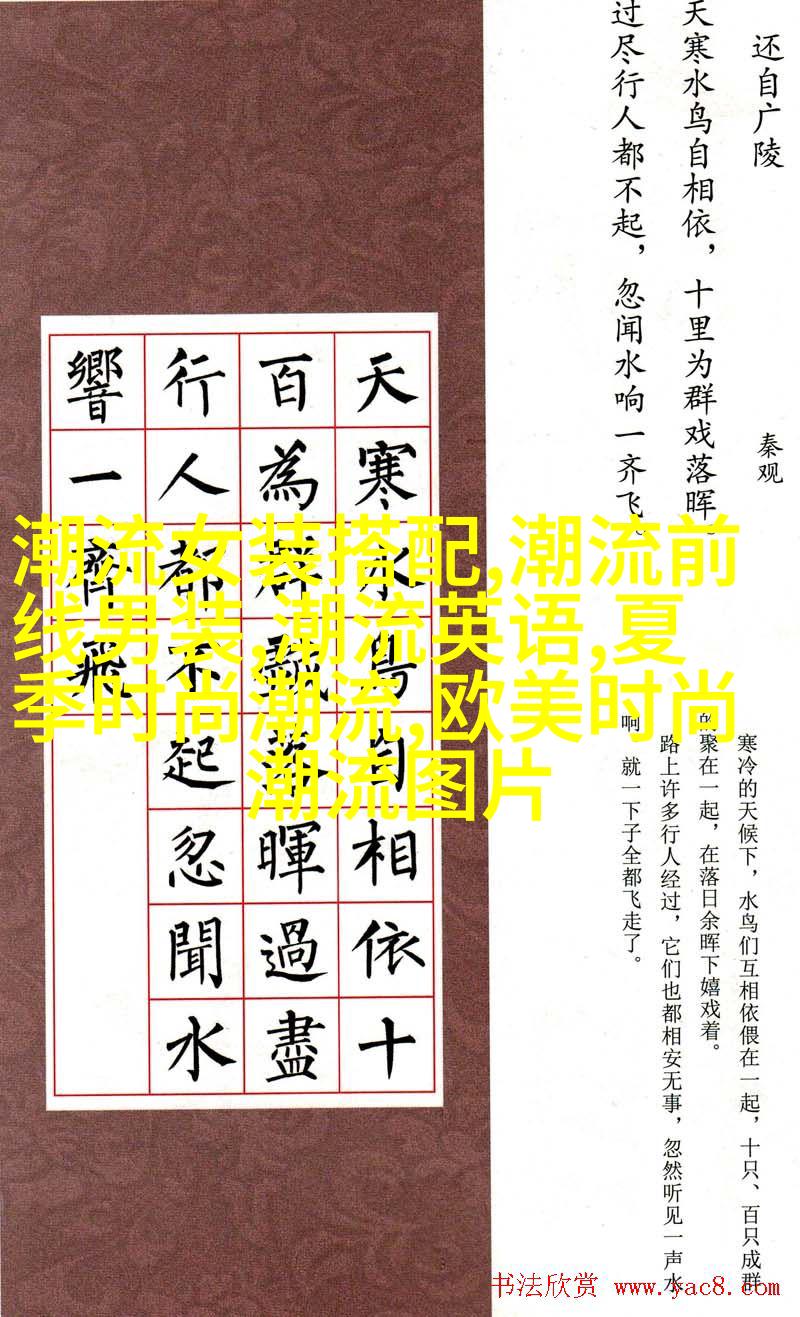 还自广陵
秦观
天寒水鸟自相依，十里为群戏落晖。
过尽行人都不起，忽闻水响一齐飞。
天寒水鳥自相依十
百為群戲落暉過盡
行人都不起忽聞水
響一齊飛
潮流女装搭配,潮流前
线男装,潮流英语,夏
季时尚潮流,欧美时尚
潮流图片
寒冷的天候下，水鸟们互相依偎在一起，十只、百只成群
的聚在一起，在落日余晖下嬉戏着。
路上许多行人经过，它们也都相安无事，忽然听见一声水
响 就一下子全都飞走了。
书法欣赏 www.yac8.com